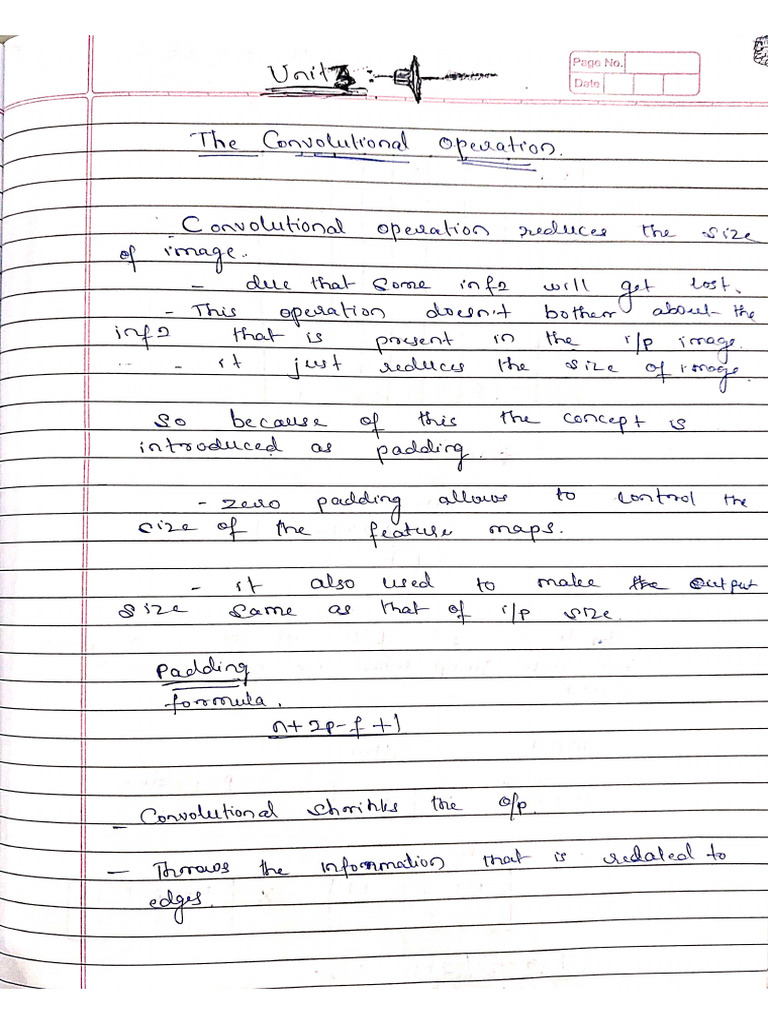 Unit 3 :-
Page No.
Date
The Convolutional Operation.
Convolutional operation reduces the size
of image.
- due that some info will get lost.
- This operation doesn't bother about the
info that is present in the i/p image.
- it just reduces the size of image.
So because of this the concept is
introduced as padding.
- zero padding allows to control the
size of the feature maps.
- it also used to make the output
size same as that of i/p size.
Padding
formula.
n+2p-f+1
- Convolutional shrinks the o/p.
- Throws the information that is related to
edges.